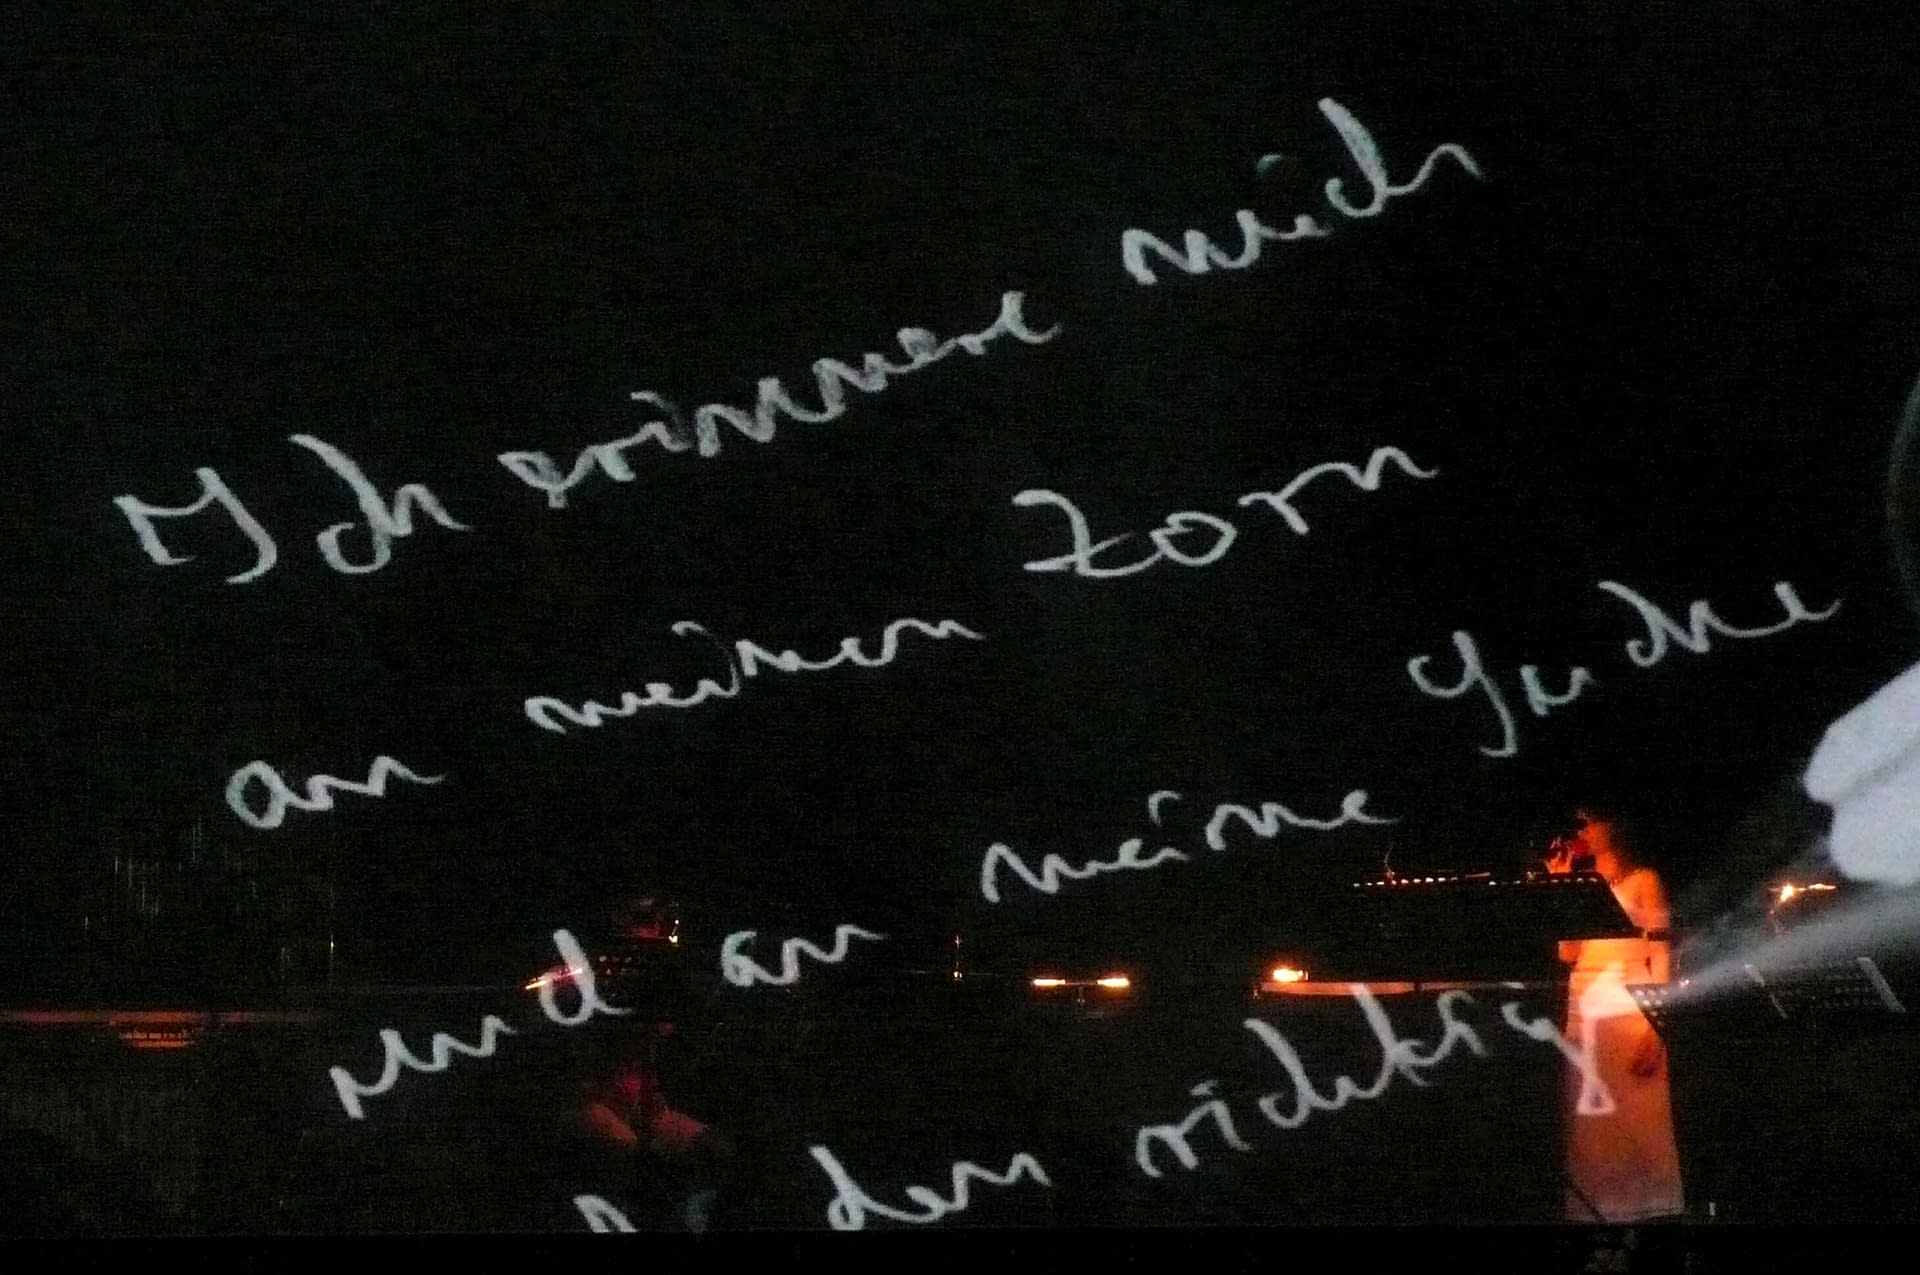 Ich erinnere mich
an meinen Zorn
und an meine Suche
dem richtig